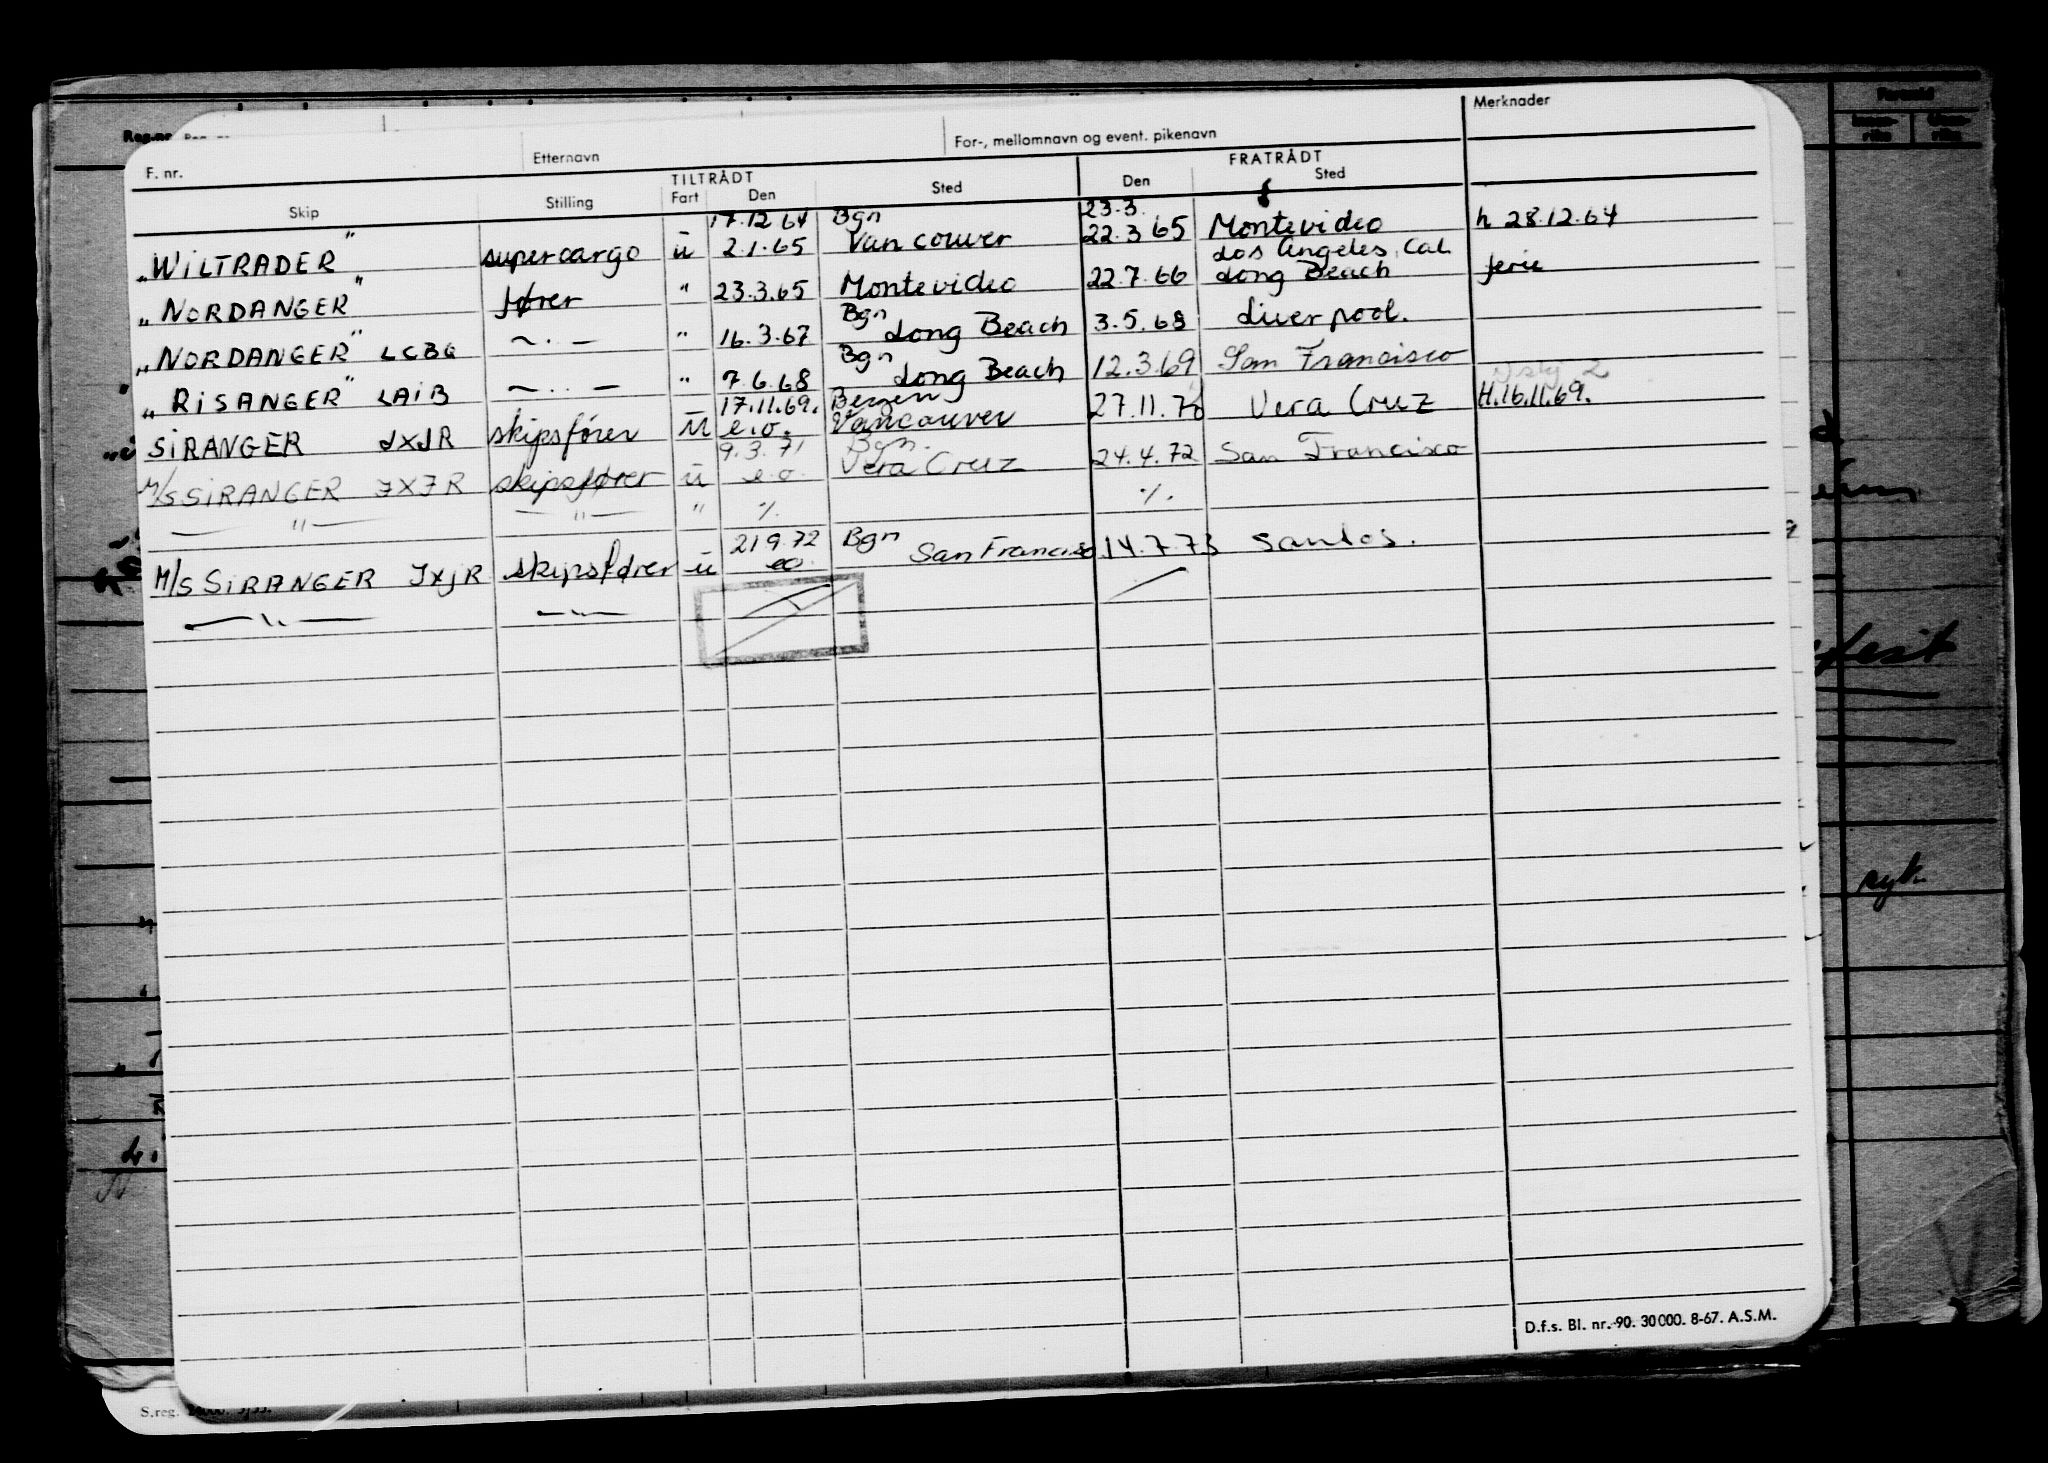 Merknader
F. nr. Etternavn For-, mellomnavn og event. pikenavn
TILTRÅDT FRATRÅDT
Skip Stilling Fart Den Sted Den Sted
17.12.64 Bgn 23.3.
„WILTRADER" supercargo u 2.1.65 Vancouver 22.3 65 Montevideo h 28.12.64
Los Angeles, Cal
„NORDANGER" fører " 23.3.65 Montevideo 22.7.66 Long Beach ferie
„NORDANGER" LCBG —"— " 16.3.67 Bgn Long Beach 3.5.68 Liverpool.
„RISANGER" LAIB —"— " 7.6.68 Bgn Long Beach 12.3.69 San Francisco
17.11.69. Bergen
SIRANGER JXJR skipsfører u e.o. Vancouver 27.11.70 Vera Cruz H.16.11.69.
9.3.71 Bgn.
M/S SIRANGER JXJR skipsfører u e.o. Vera Cruz 24.4.72 San Francisco
—"— —"— " ./. ./.
21 9.72 Bgn
M/S SIRANGER JXJR skipsfører u eo. San Francisco 14.7.73 Santos.
—"— —"—
D.f.s. Bl. nr. 90. 30 000. 8-67. A.S.M.
S.reg.